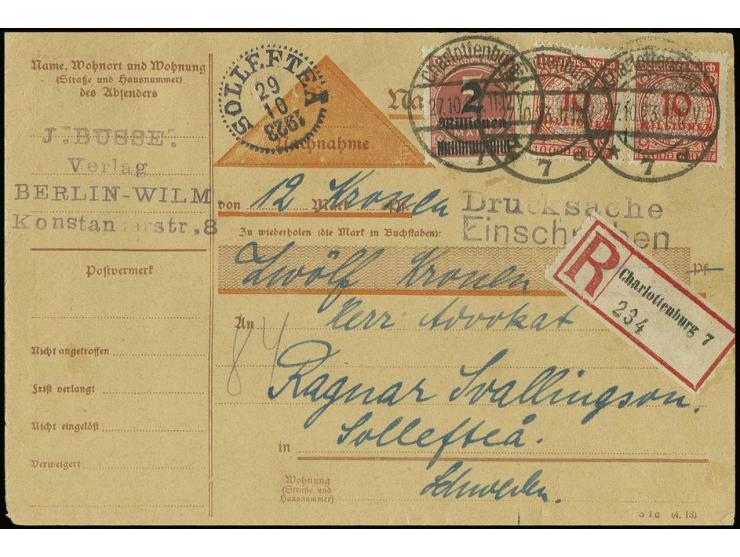 Name, Wohnort und Wohnung
(Straße und Hausnummer)
des Absenders
J. BUSSE.
Verlag
BERLIN-WILM
Konstanzerstr.8
Postvermerk
Nicht angetroffen
Frist verlangt
Nicht eingelöst
Verweigert
SOLLEFTEÅ
29
10
1923
Nachnahme
Charlottenburg
27.10.
7
2
Millionen
10
MILLIONEN
10
MILLIONEN
7
7
von 12 Kronen Mark
Drucksache
Einschreiben
Zu wiederholen (die Mark in Buchstaben):
Zwölf Kronen Pf.
R
Charlottenburg 7
234
An Herr Advokat
84
Ragnar Svallingson.
in Sollefteå.
Wohnung
(Straße und
Hausnummer)
Schweden.